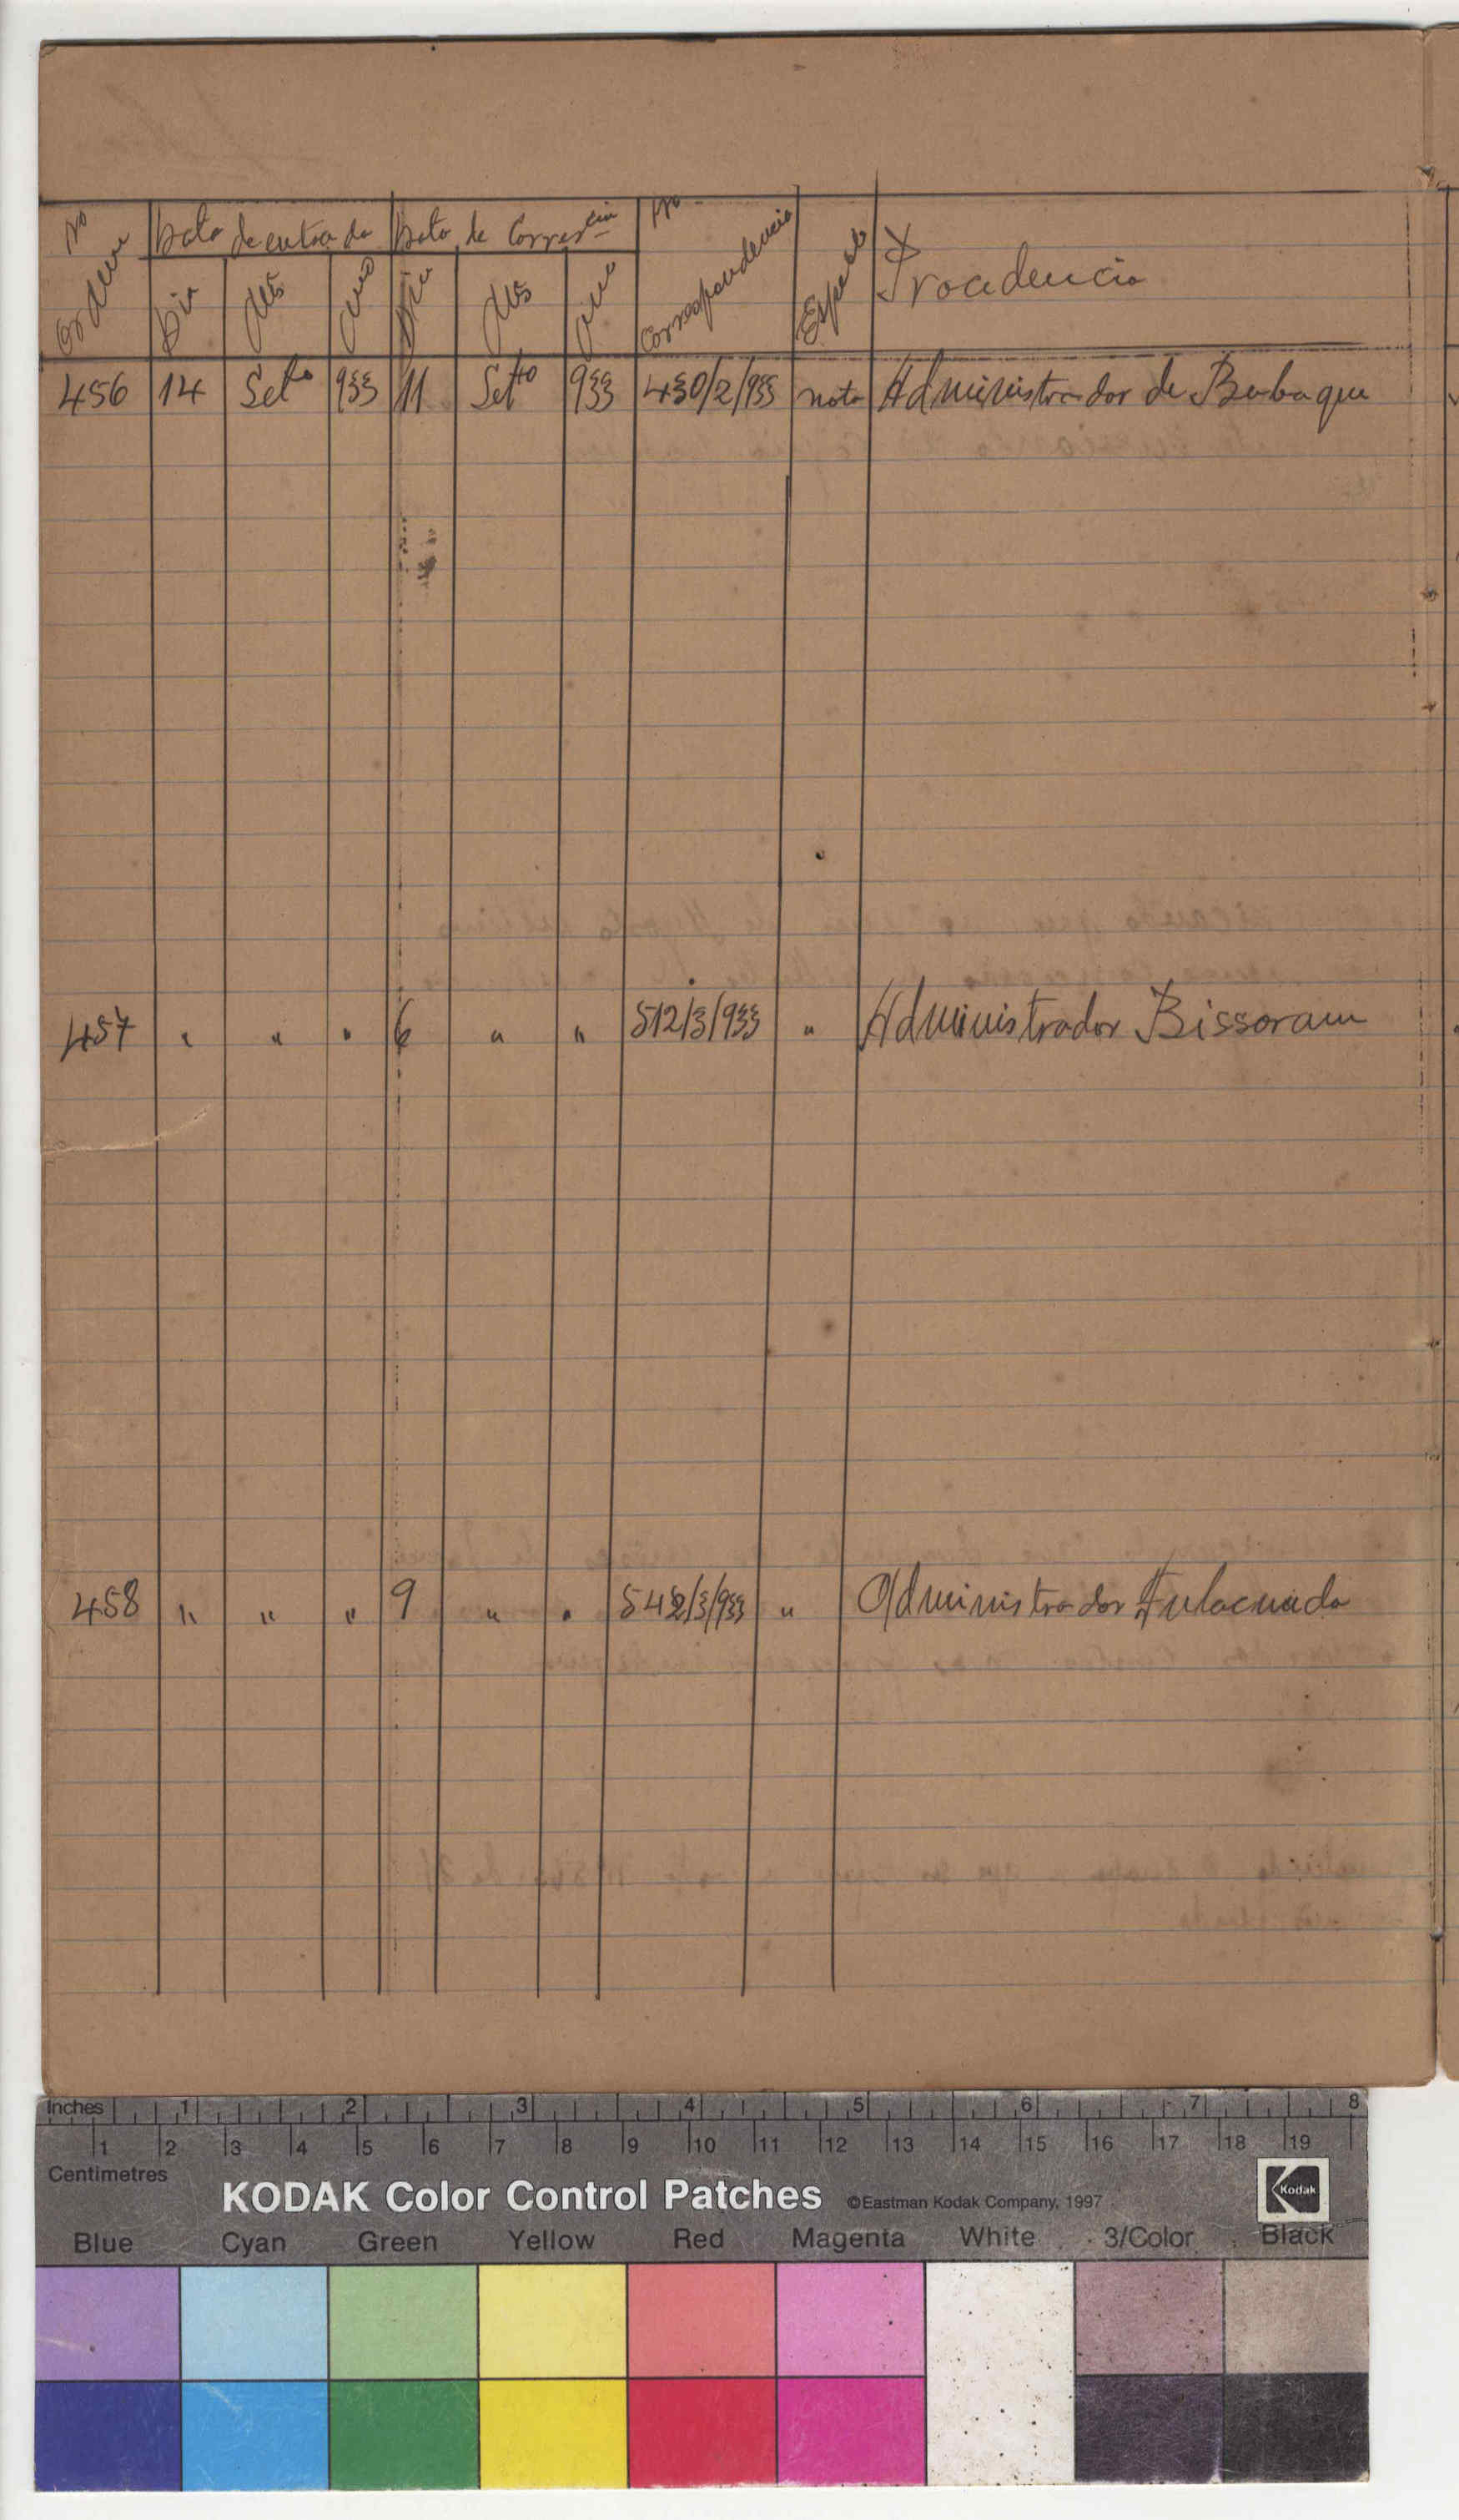 No Ordem Data de entrada Data de Correscia No Correspondencia Especie Procedencia
Dia Mês Ano Dia Mês Ano
456 14 Setº 933 11 Settº 933 430/2/933 nota Administrador de Bubaque
457 " " " 6 " " 512/3/933 " Administrador Bissoram
458 " " " 9 " " 542/3/933 " Administrador Fulacunda
Inches 1 2 3 4 5 6 7 8
1 2 3 4 5 6 7 8 9 10 11 12 13 14 15 16 17 18 19
Centimetres
KODAK Color Control Patches ©Eastman Kodak Company, 1997 Kodak
Blue Cyan Green Yellow Red Magenta White 3/Color Black